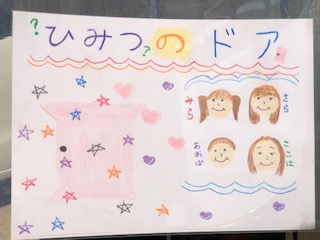 ?ひみつ?のドア
みら さら
あおば ここは